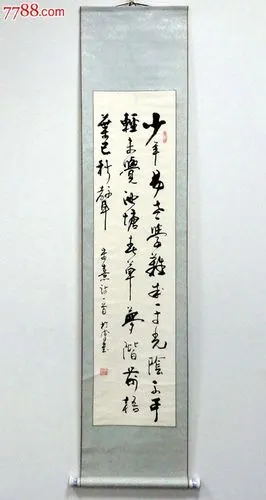 7788.com
少年易老學難成一寸光陰不可
輕未覺池塘春草夢階前梧
葉已秋聲
朱熹詩一首